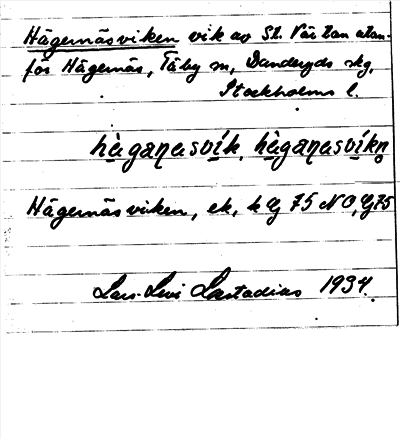 Hägernäsviken vik av St. Värtan utan-
för Hägernäs, Täby sn, Danderyds skg,
Stockholms l.
hä̀gaɳasvík, hä̀gaɳasvíkn̥
Hägernäsviken, ek, h Lg 75 NO, Lg 75
Lars-Levi Læstadius 1934.